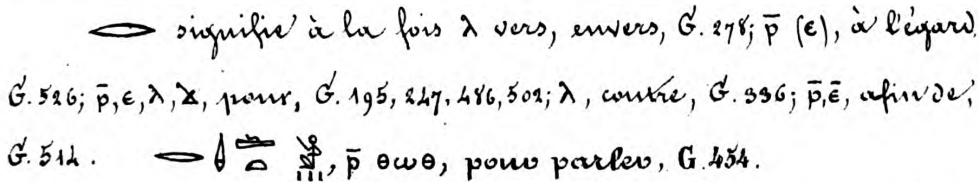 𓂋 signifie à la fois ⲗ vers, envers, G. 278; ⲣ̄ (ⲉ), à l'égard,
G. 526; ⲣ̄, ⲉ, ⲗ, pour, G. 195, 247, 486, 502; ⲗ, contre, G. 336; ⲣ̄, ⲉ̄, afin de,
G. 512. 𓂋 ⲣ̄ ⲑⲱⲑ, pour parler, G. 454.